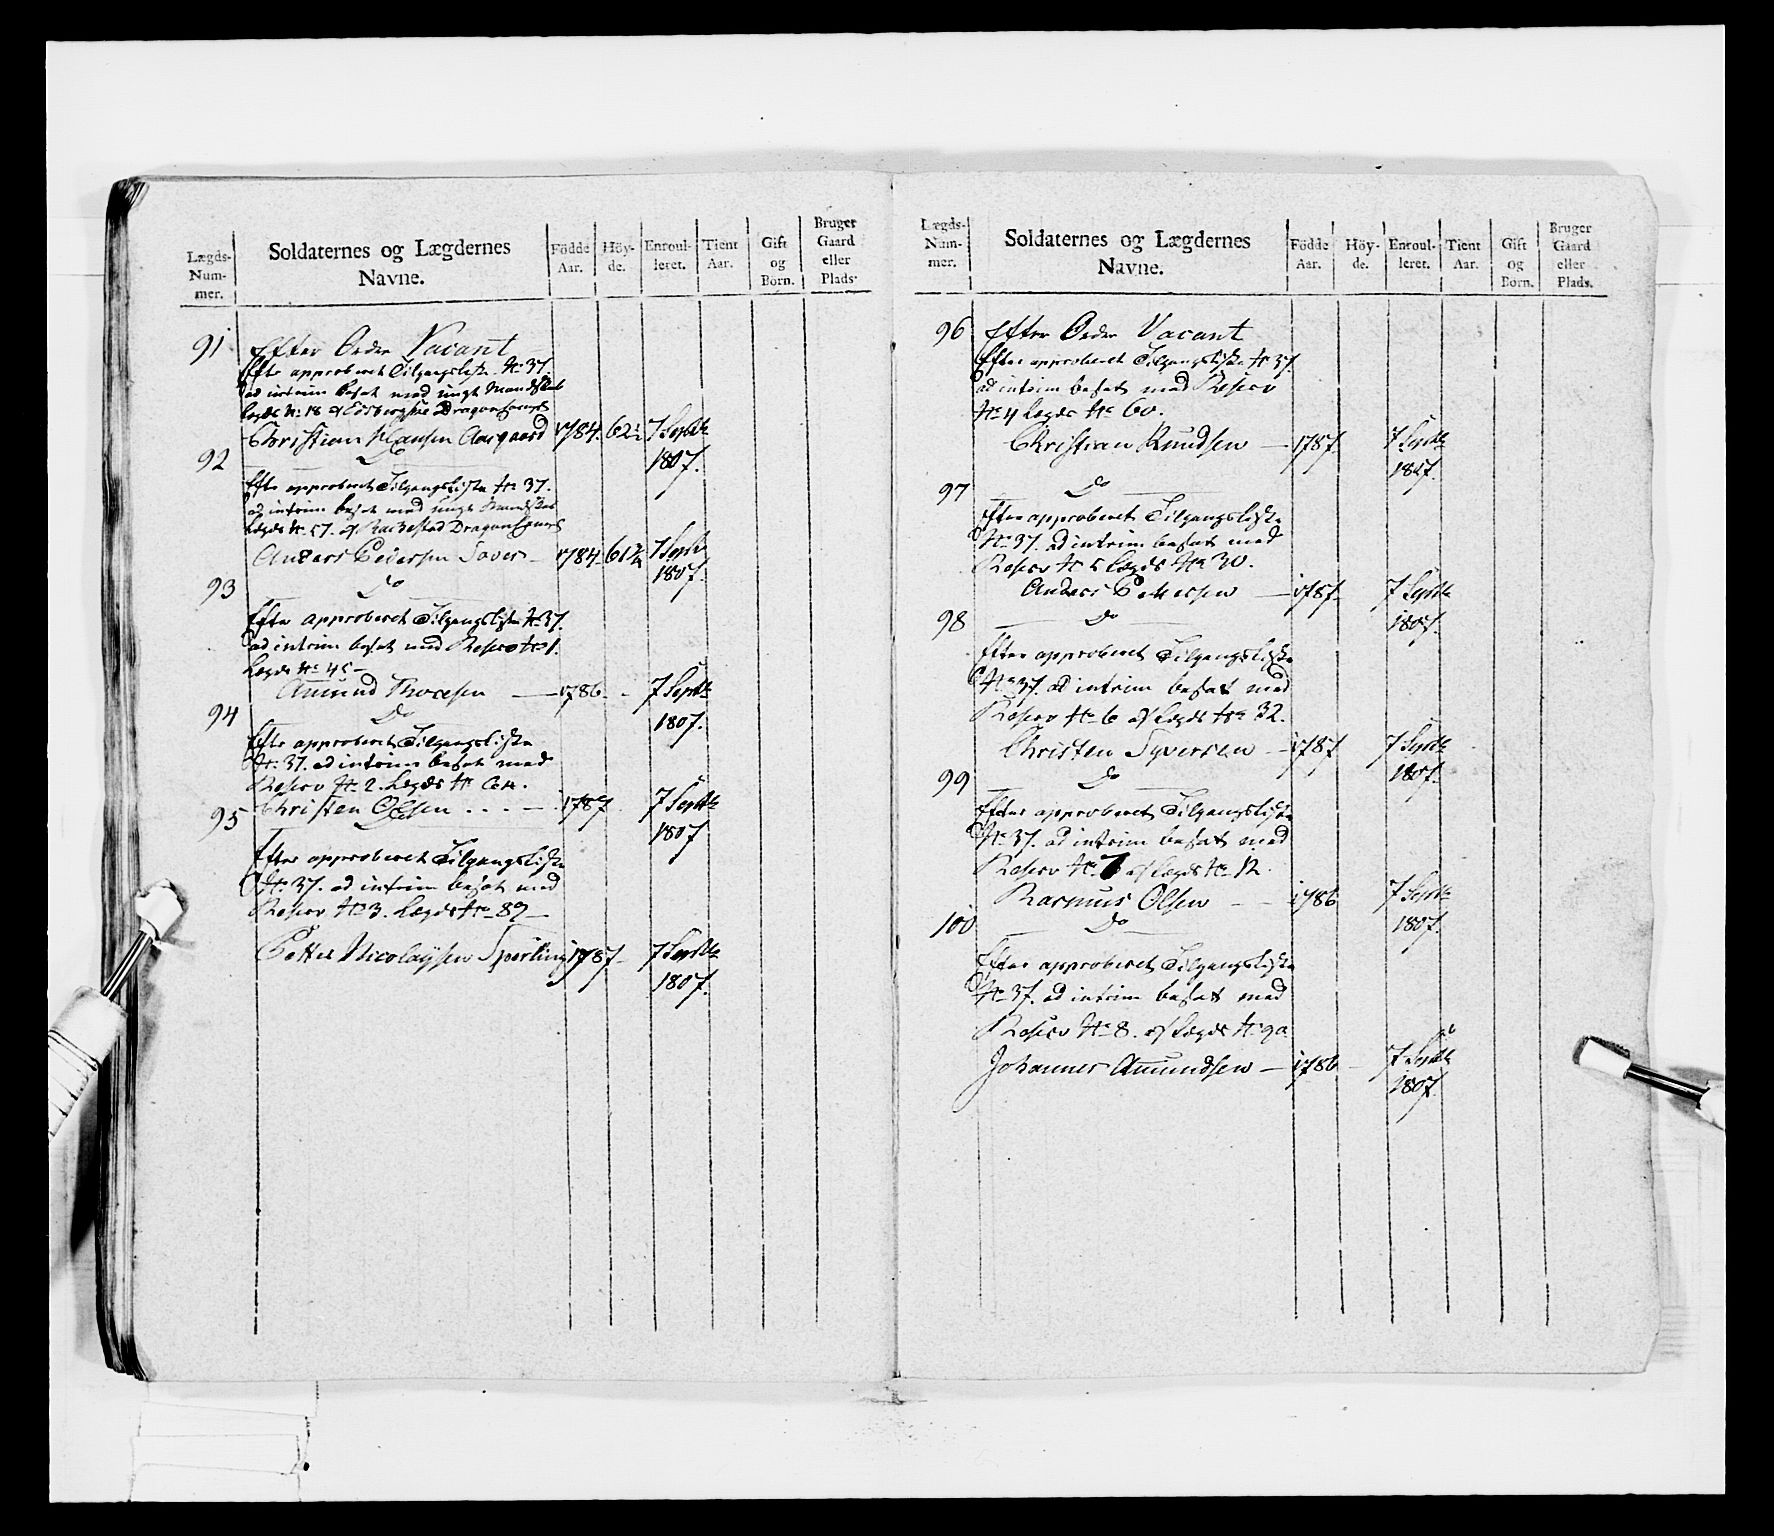 Lægds-Num-mer. Soldaternes og Lægdernes Navne. Födde Aar. Höy-de. Enroul-leret. Tient Aar. Gift og Börn. Bruger Gaard eller Plads
91 Efter Ordre Vacant
Efter approberet Tilgangsliste No 37.
ad intrim besat med ungt Mandskab
Lægds No 18 af Dragon
Christian Hansen Aasgaard 1784. 62½ 7 Septbr
1807.
92 Do
Efter approberet Tilgangsliste No 37.
ad intrim besat med ungt Mandskab
Lægds No 57. af Rackestad Dragon
Anders Pedersen 1784. 7 Septbr
1807.
93 Do
Efter approberet Tilgangsliste No 37.
ad intrim besat med Reserv No 1.
Lægds No 45
Amund Thoresen 1786. 7 Septbr
1807.
94 Do
Efter approberet Tilgangsliste
No 37. ad intrim besat med
Reserv No 2. Lægds No
Christen Olsen 1787 7 Septbr
1807
95 Do
Efter approberet Tilgangsliste
No 37. ad intrim besat med
Reserv No 3. Lægds No 89
Petter Nicolaysen Sperling 1787 7 Septbr
1807.
Lægds-Num-mer. Soldaternes og Lægdernes Navne. Födde Aar. Höy-de. Enroul-leret. Tient Aar. Gift og Börn. Bruger Gaard eller Plads.
96 Efter Ordre Vacant
Efter approberet Tilgangsliste No 37.
ad intrim besat med Reserv
No 4 Lægds No 60.
Christian Knudsen 1787. 7 Septbr
1807.
97 Do
Efter approberet Tilgangsliste
No 37. ad intrim besat med
Reserv No 5 Lægds No 30.
Anders Pettersen 1787. 7 Septbr
1807.
98 Do
Efter approberet Tilgangsliste
No 37. ad intrim besat med
Reserv No 6 af Lægds No 32.
Christen Syversen 1787 7 Septbr
1807.
99 Do
Efter approberet Tilgangsliste
No 37. ad intrim besat med
Reserv No 7 af Lægds No 12.
Rasmus Olsen 1786 7 Septbr
1807.
100 Do
Efter approberet Tilgangsliste
No 37. ad intrim besat med
Reserv No 8. af Lægds No 90
Johannes Amundsen 1786 7 Septbr
1807.